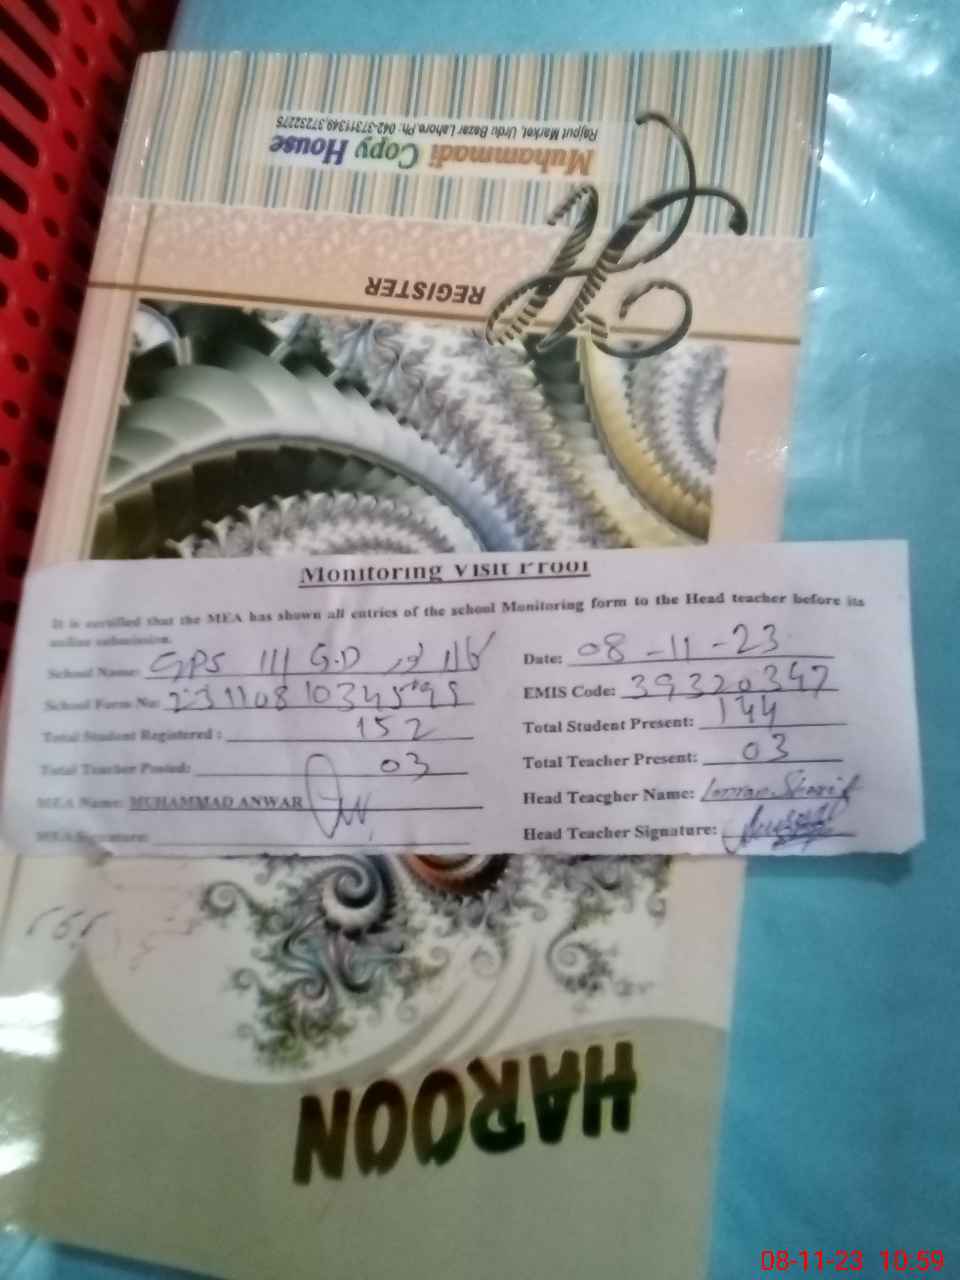 Muhammadi Copy House
Rajput Market, Urdu Bazar Lahore.Ph: 042-37311349,37232275
REGISTER
Monitoring Visit Proof
It is certified that the MEA has shown all entries of the school Monitoring form to the Head teacher before its
online submission.
School Name: GPS 111 G.D
Date: 08-11-23
School Form No:
EMIS Code: 39320347
Total Student Registered : 152
Total Student Present: 144
Total Teacher Posted: 03
Total Teacher Present: 03
MEA Name: MUHAMMAD ANWAR
Head Teacgher Name: Sharif
MEA Signature:
Head Teacher Signature:
HAROON
08-11-23 10:59